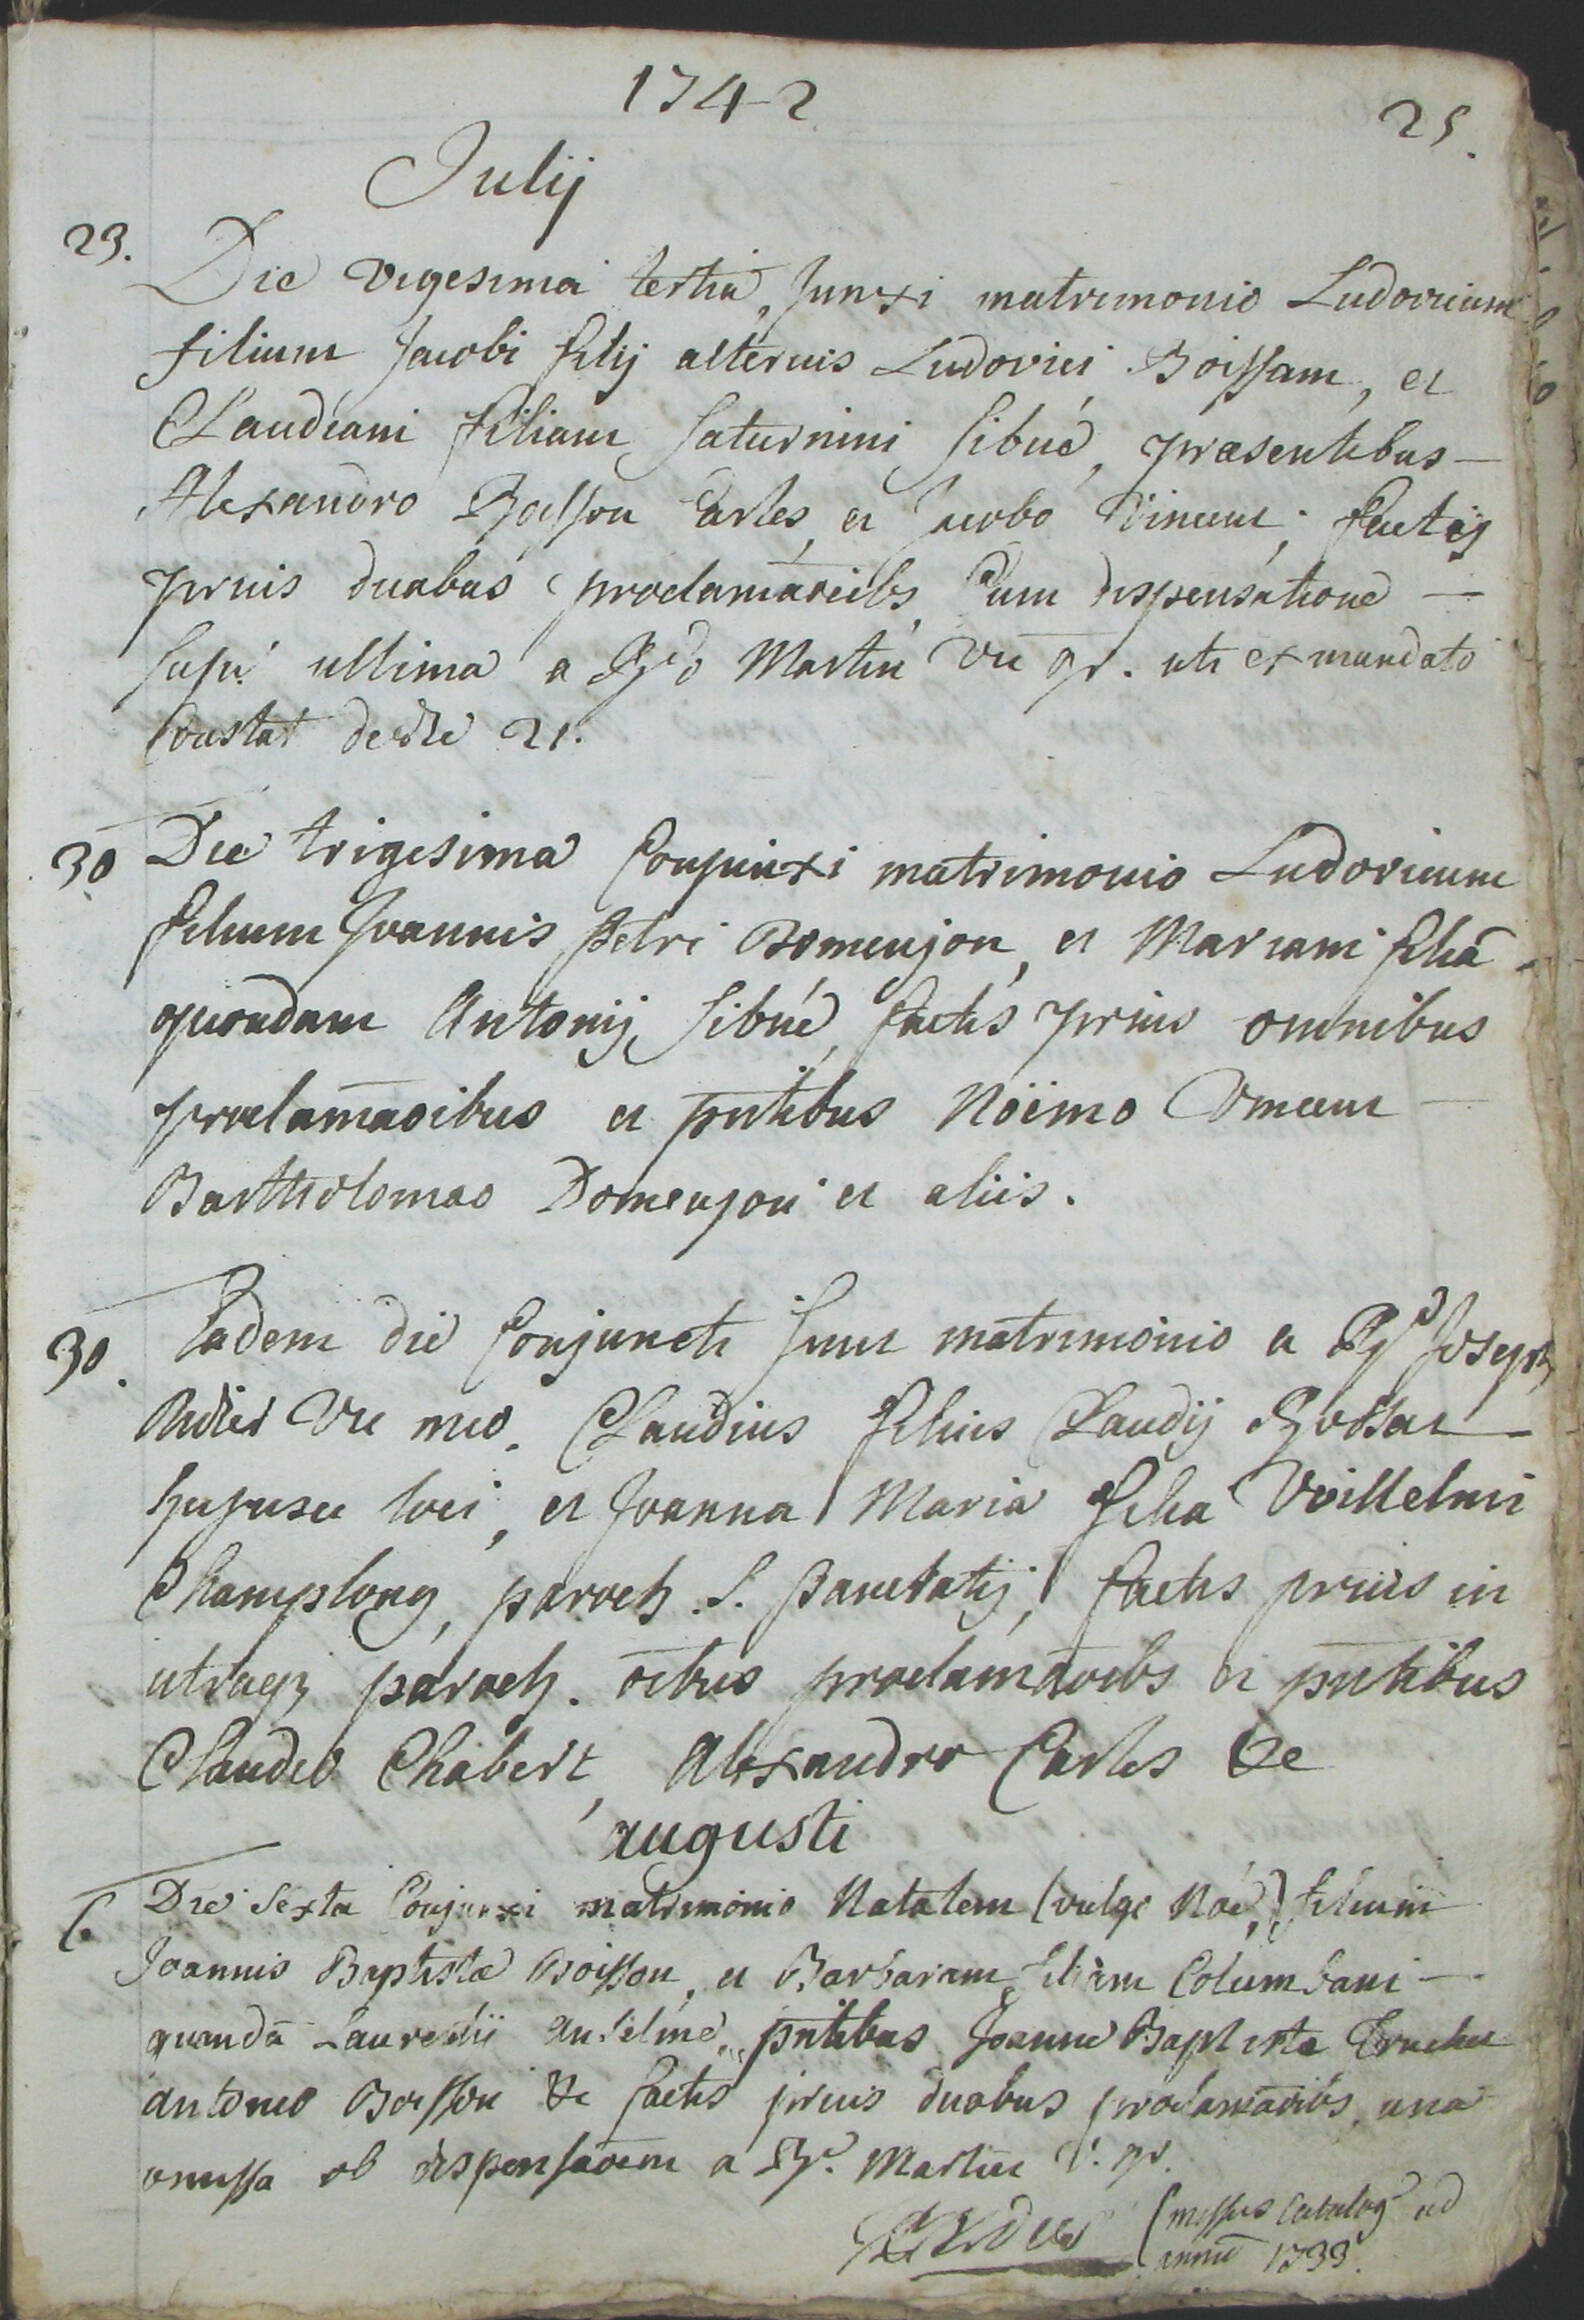 1742
25.
Julij
23. Die vigesima tertia, Junxi matrimonio Ludovicum
filium Jacobi filij alterius Ludovici Boissam, et
Claudiam filiam Saturnini Sibué, præsentibus
Alexandro Boisson Carles, et Jacobo Vincent; factis
prius duabus proclamaōibs, Cum dispensatione
sup. ultima a Rdo Martin Vic gr. uti ex mandato
Constat de die 21.
30 Die trigesima Conjunxi matrimonio Ludovicum
filium Joannis petri Domenjon, et Mariam filiā
quondam Antonij Sibué, factis prius omnibus
proclamaōibus et pntibus Noëmo Vincent
Bartholomæo Domenjon et aliis.
30. Eadem die Conjuncti sunt matrimonio a Rd Joseph
Didier Vic meo, Claudius filius Claudij Rossat
hujusce loci, et Joanna Maria filia Vuillelmi
Champlong, paroch. S. Pancratij, factis prius in
utraq; paroch. oībus proclamaōibs et pntibus
Claudio Chabert, Alexandro Carles &c
augusti
6. Die Sexta Conjunxi matrimonio Natalem (vulgo Noé,) filium
Joannis Baptistæ Boisson, et Barbaram filiam Columbani
quondā Laurentii Anselme, pntibus Joanne Baptista Truchet
antonio Boisson &c factis prius duabus proclamaōibs, una
omissa ob dispensaōem a Rd. Martin V. gr.
missus Catalog ad
annū 1733.